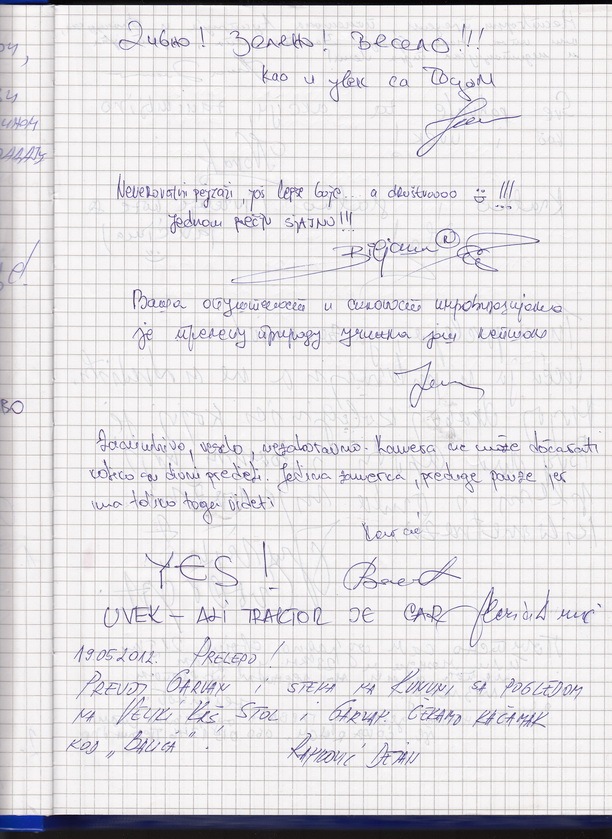 Дивно! Зелено! Весело!!!
Као и увек са Тоцом
Neverovatni pejzaži, još lepše boje... a društvooo !!!
Jednom rečju SJAJNO!!!
Biljana
Ваша опуштеност и
је прелепу природу учинила још лепшом
Zanimljivo, veselo, nezaboravno. Kamera ne može dočarati
koliko su divni predeli. Jedina zamerka, preduge pauze jer
ima toliko toga videti
YES!
UVEK - ALI TRAKTOR JE CAR
19.05.2012. PRELEPO!
PREVOJ GARVAN I STENA NA KUNUNI SA POGLEDOM
NA VELIKI KRŠ, STOL I GARVAN. ČEKAMO KAČAMAK
KOD „BALIĆA“.